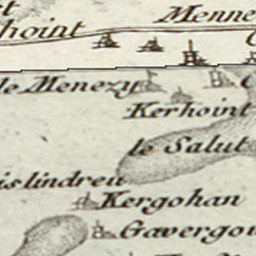 Menne
hoint
le Menezy
Kerhoint
le Salut
islindreu
Kergohan
Gavergou